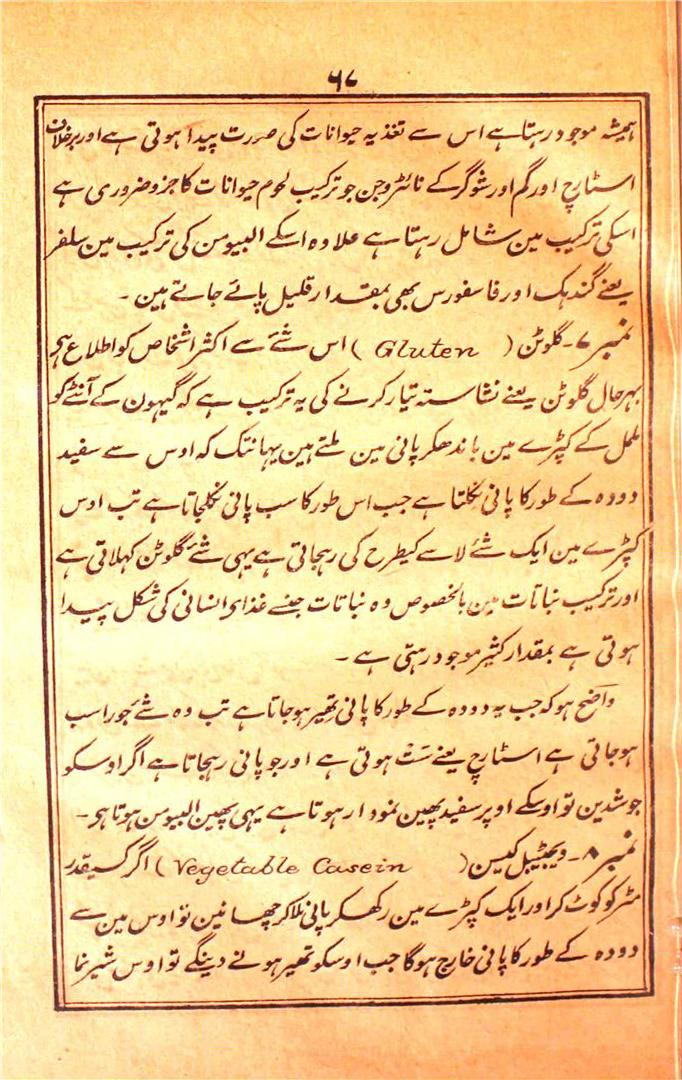 ۶۷
ہمیشہ موجود رہتا ہے اس سے تغذیہ حیوانات کی صورت پیدا ہوتی ہے اور برخلاف
اسٹارچ اور گم اور شوگر کے نائٹروجن جو ترکیب لحوم حیوانات کا جزو ضروری ہے
اسکی ترکیب مین شامل رہتا ہے علاوہ اسکے البیومن کی ترکیب مین سلفر
یعنے گندہک اور فاسفورس بھی بمقدار قلیل پائے جاتے ہین ۔
نمبر ۷ ۔ گلوٹن ( Gluten ) اس شئے سے اکثر اشخاص کو اطلاع ہی
بہرحال گلوٹن یعنے نشاستہ تیار کرنے کی یہ ترکیب ہے کہ گیہون کے آنٹے کو
ململ کے کپڑے مین باندھکر پانی مین ملتے ہین یہانتک کہ اوس سے سفید
دودہ کے طور کا پانی نکلتا ہے جب اس طور کا سب پانی نکلجاتا ہے تب اوس
کپڑے مین ایک شئے لاسے کیطرح کی رہجاتی ہے یہی شئے گلوٹن کہلاتی ہے
اور ترکیب نباتات مین بالخصوص وہ نباتات جنسے غذای انسانی کی شکل پیدا
ہوتی ہے بمقدار کثیر موجود رہتی ہے ۔
واضح ہو کہ جب یہ دودہ کے طور کا پانی تھیر ہو جاتا ہے تب وہ شئے جو راسب
ہو جاتی ہے اسٹارچ یعنے ست ہوتی ہے اور جو پانی رہجاتا ہے اگر اوسکو
جوشدین تو اوسکے اوپر سفید پھین نمودار ہوتا ہے یہی پھین البیومن ہوتا ہی ۔
نمبر ۸ ۔ ویجٹیبل کیسن ( Vegetable Casein ) اگر کسیقدر
مٹر کو کوٹ کر اور ایک کپڑے مین رکھکر پانی ملا کر چھانین تو اوس مین سے
دودہ کے طور کا پانی خارج ہوگا جب اوسکو تھیر ہونے دینگے تو اوس شیرنما